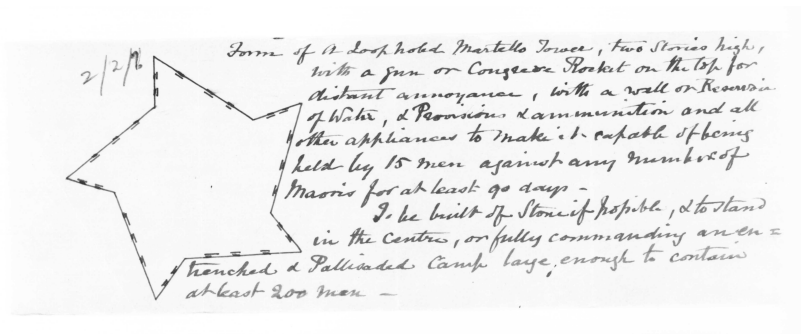 2/2/6
Form of A Loop holed Martello Tower, two Stories high,
with a gun or Congreve Rocket on the top for
distant annoyance, with a wall or Reservoir
of Water, & Provisions & ammunition and all
other appliances to make it capable of being
held by 15 men against any number of
Maoris for at least 90 days -
To be built of Stone if possible, & to stand
in the centre, or fully commanding an en=
trenched & Pallisaded Camp large enough to contain
at least 200 men -